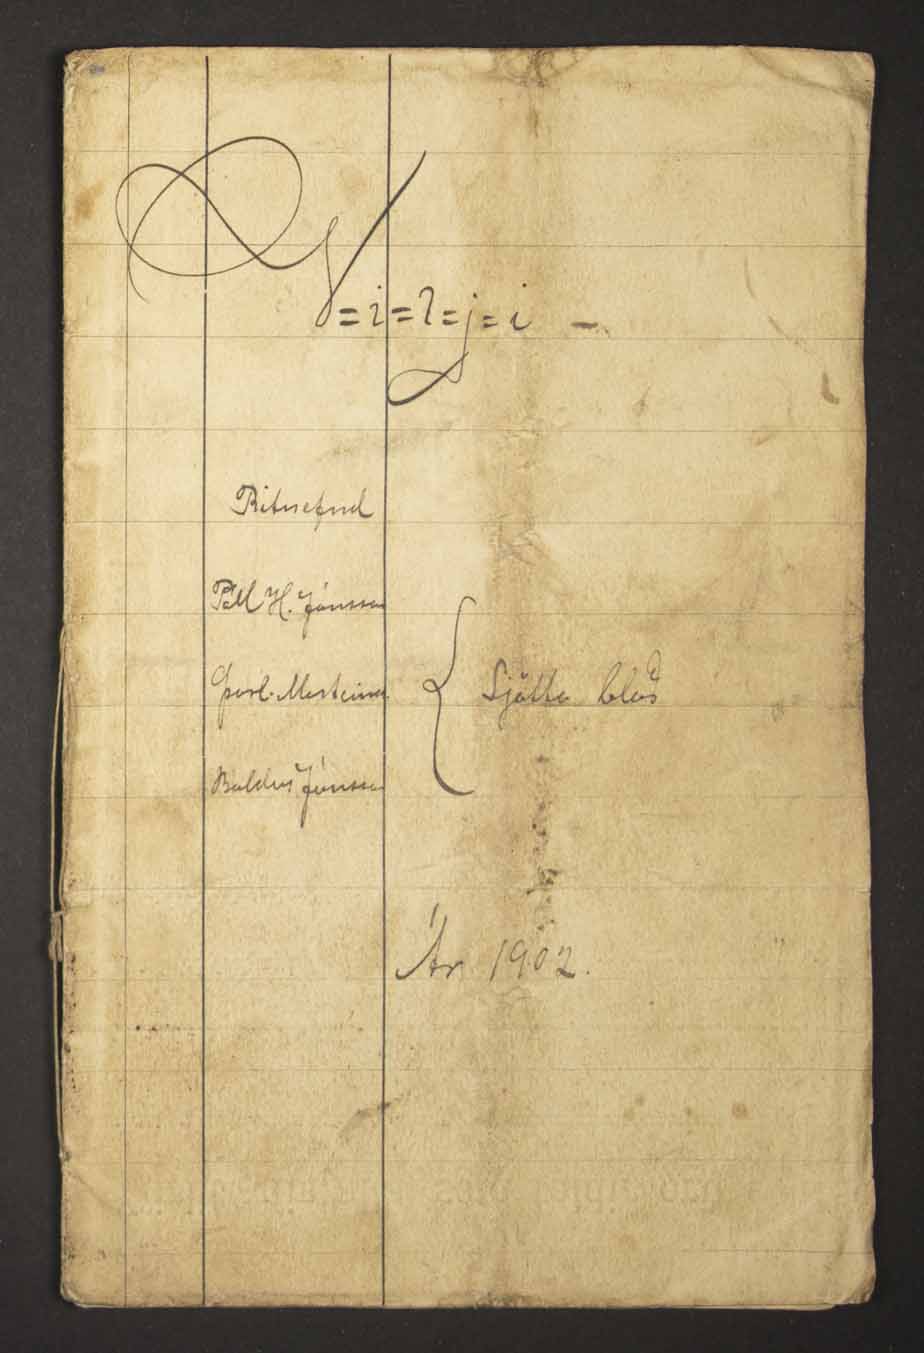 V=i=l=j=i -
Ritnefnd
Páll H. Jónsson
Þorl. Marteinss.
Sjötta blað
Baldur Jónsson
Ár 1902.